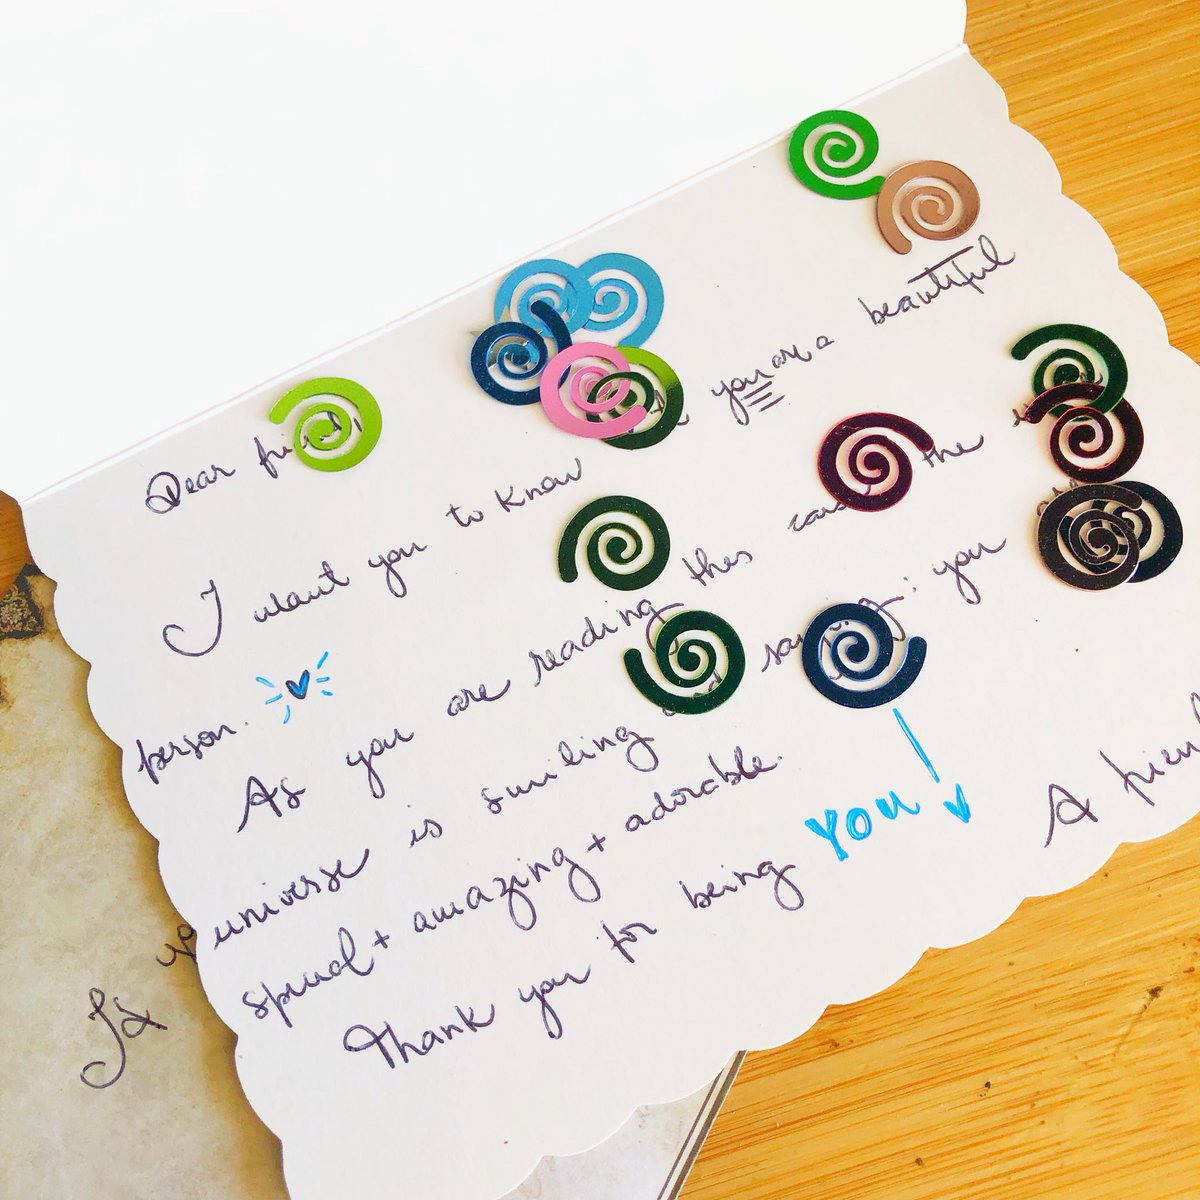 Dear friend,
I want you to know you are a beautiful
person.
As you are reading this card the
universe is smiling and saying: you
spread + amazing + adorable.
Thank you for being YOU
A